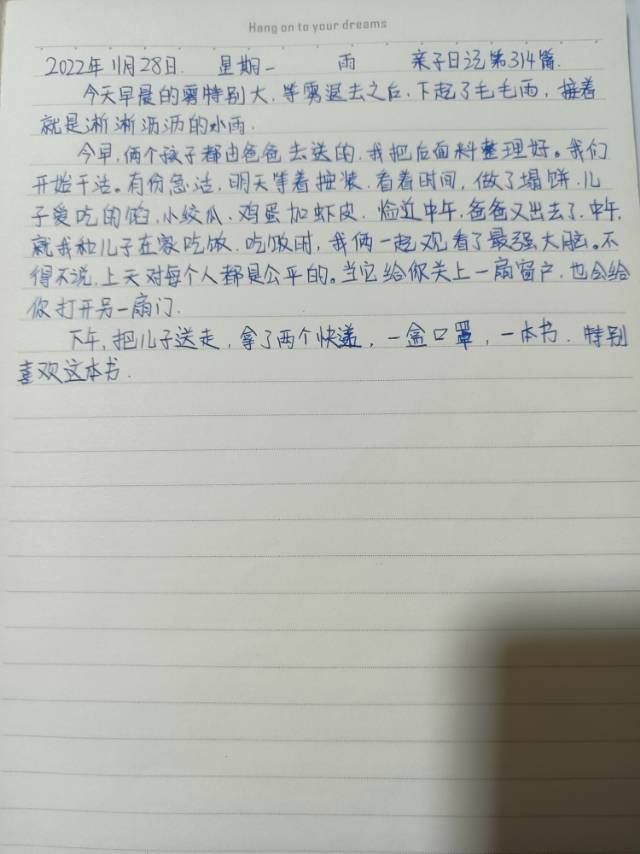 Hang on to your dreams
2022年11月28日. 星期一 雨 亲子日记第314篇.
今天早晨的雾特别大,等雾退去之后,下起了毛毛雨,接着
就是淅淅沥沥的小雨.
今早,俩个孩子都由爸爸去送的,我把后面料整理好。我们
开始干活。有份急活,明天等着按装.看着时间,做了塌饼.儿
子爱吃的馅,小绞瓜.鸡蛋加虾皮.临近中午,爸爸又出去了.中午,
就我和儿子在家吃饭.吃饭时,我俩一起观看了最强大脑。不
得不说,上天对每个人都是公平的。当它给你关上一扇窗户,也会给
你打开另一扇门.
下午,把儿子送走,拿了两个快递,一盒口罩,一本书.特别
喜欢这本书.